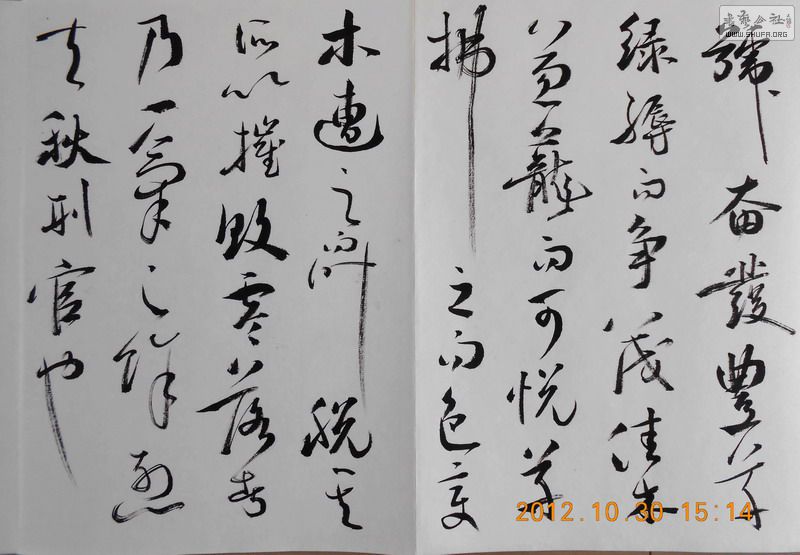 號奋發豐草
绿縟而争茂佳木
葱蘢而可悦草
拂之而色变
木遭之而叶脱其
所以摧敗零落者
乃一氣之餘烈
夫秋刑官也
書藝公社
WWW.SHUFA.ORG
2012.10.30 15:14